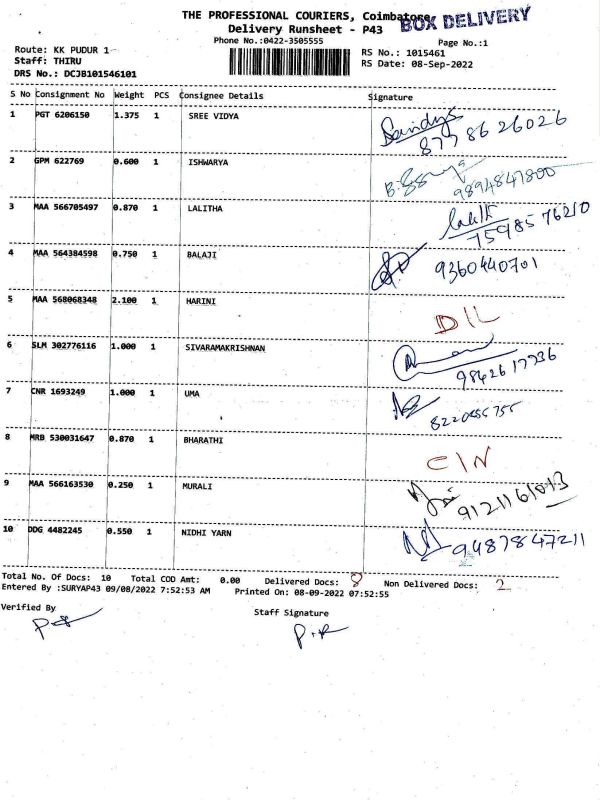 THE PROFESSIONAL COURIERS, Coimbatore
BOX DELIVERY
Delivery Runsheet - P43
Phone No.:0422-3505555
Page No.:1
Route: KK PUDUR 1
RS No.: 1015461
Staff: THIRU
RS Date: 08-Sep-2022
DRS No.: DCJB101546101
S No Consignment No Weight PCS Consignee Details Signature
1 PGT 6206150 1.375 1 SREE VIDYA
8778626026
2 GPM 622769 0.600 1 ISHWARYA
9894847800
3 MAA 566705497 0.870 1 LALITHA Lalit
7598576210
4 MAA 564384598 0.750 1 BALAJI 9360440701
5 MAA 568068348 2.100 1 HARINI D/L
6 SLM 302776116 1.000 1 SIVARAMAKRISHNAN
9842617936
7 CNR 1693249 1.000 1 UMA
8 MRB 530031647 0.870 1 BHARATHI C/N
9 MAA 566163530 0.250 1 MURALI
10 DDG 4482245 0.550 1 NIDHI YARN 9487847211
Total No. Of Docs: 10 Total COD Amt: 0.00 Delivered Docs: 8 Non Delivered Docs: 2
Entered By :SURYAP43 09/08/2022 7:52:53 AM Printed On: 08-09-2022 07:52:55
Verified By Staff Signature